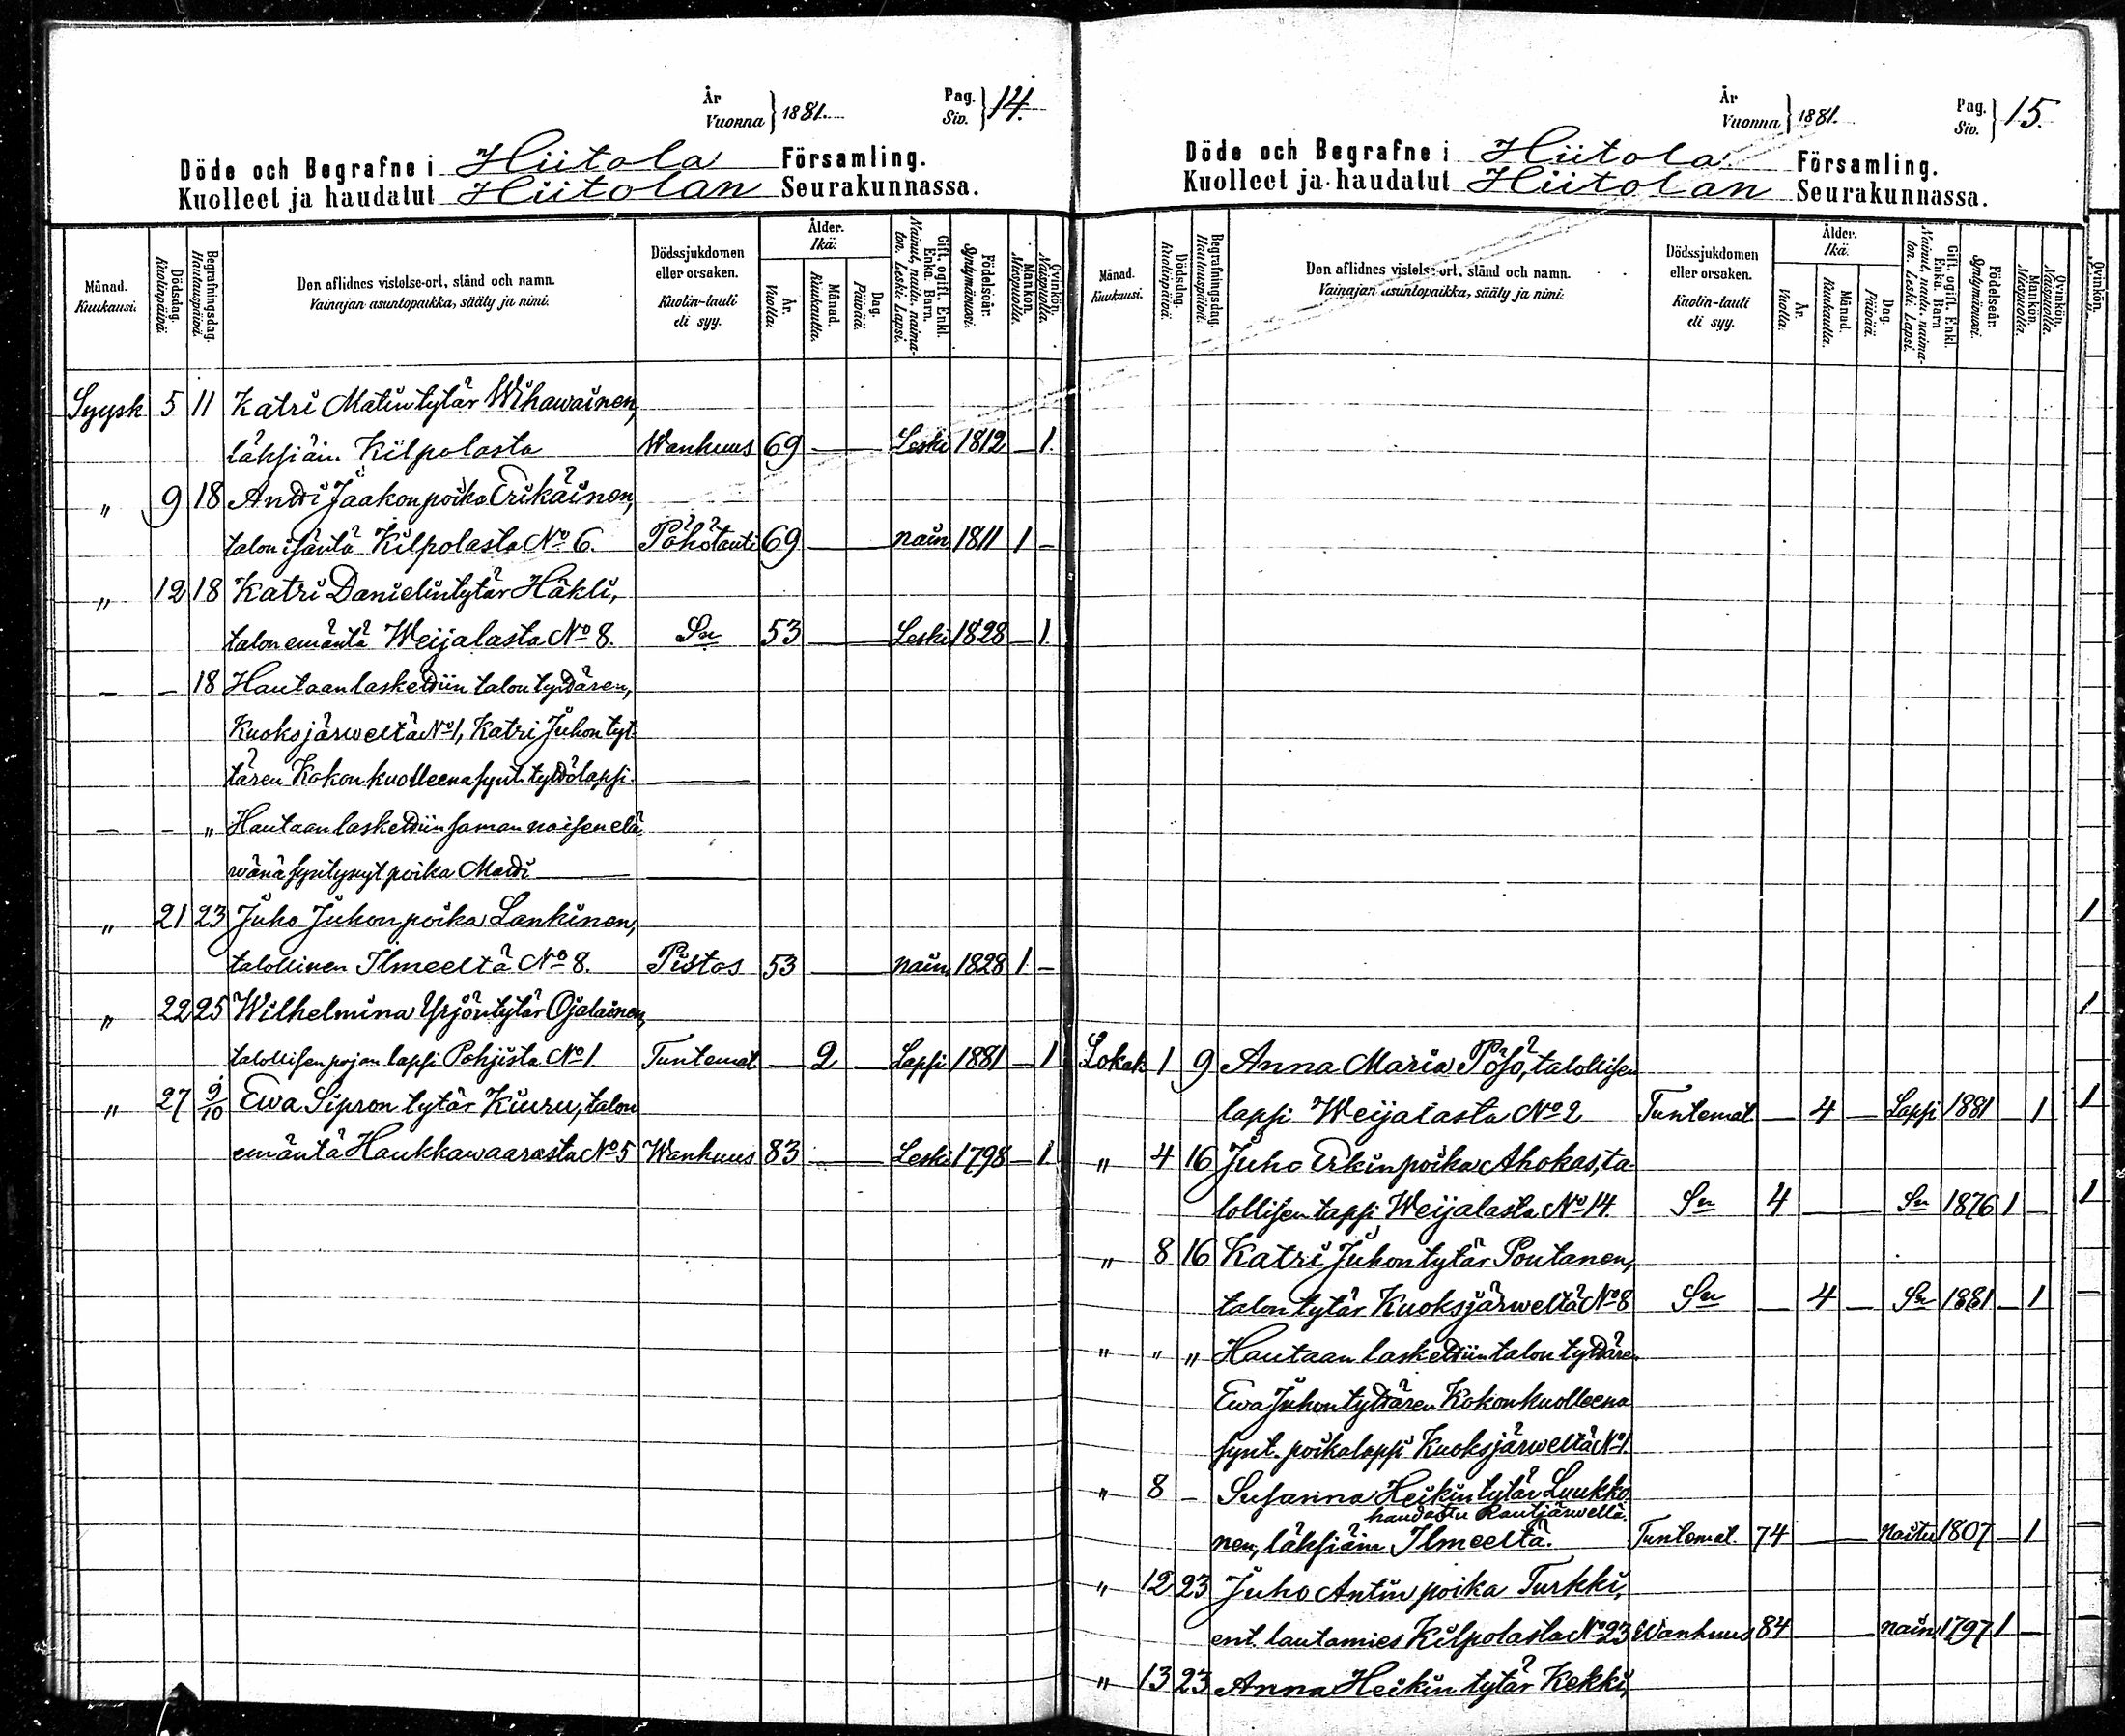 År
Vuonna } 1881.
Pag.
Siv. } 14.
Döde och Begrafne i Hiitola Församling.
Kuolleet ja haudatut Hiitolan Seurakunnassa.
Månad.
Kuukausi.
Dödsdag.
Kuolinpäivä
Begrafningsdag.
Hautauspäivä.
Den aflidnes vistelse-ort, stånd och namn.
Vainajan asuntopaikka, sääty ja nimi.
Dödssjukdomen
eller orsaken.
Kuolin-tauti
eli syy.
Ålder.
Ikä:
År.
Vuotta:
Månad.
Kuukautta.
Dag.
Päivää.
Gift, ogift. Enkl.
Enka. Barn.
Nainut, naitu, naima-
ton. Leski: Lapsi.
Födelseår.
Syntymävuosi.
Mankön.
Miespuolia.
Qvinkön.
Naispuolia.
Syysk 5 11 Katri Matintytär Wihawainen,
läksiäin. Kilpolasta Wanhuus 69 — Leski 1812 — 1.
„ 9 18 Antti Jaakonpoika Erikäinen,
talon isäntä Kilpolasta No 6. Pöhötauti 69 — nain 1811 1 –
„ 12 18 Katri Danielintytär Häkli,
talon emäntä Weijalasta No 8. Sn 53 — Leski 1828 — 1.
– – 18 Hautaan laskettiin talon tyttären,
Kuoksjärweltä No 1, Katri Juhon tyt-
tären Kokon kuolleena synt. tyttölapsi. —
— – „ Hautaan laskettiin saman naisen elä
wänä syntynyt poika Matti — —
„ 21 23 Juho Juhonpoika Lankinen,
talollinen Ilmeeltä No 8. Pistos 53 — nain 1828 1 –
„ 22 25 Wilhelmina Yrjöntytär Ojalainen,
talollisen pojan lapsi Pohjista No 1. Tuntemat — 2 — Lapsi 1881 — 1
„ 27 9/10 Ewa Sipron tytär Kiuru, talon
emäntä Haukkawaarasta No 5 Wanhuus 83 — Leski 1798 — 1.
År
Vuonna } 1881.
Pag.
Siv. } 15.
Döde och Begrafne i Hiitola Församling.
Kuolleet ja haudatut Hiitolan Seurakunnassa.
Månad.
Kuukausi.
Dödsdag.
Kuolinpäivä.
Begrafningsdag.
Hautauspäivä.
Den aflidnes vistelse-ort, stånd och namn.
Vainajan asuntopaikka, sääty ja nimi:
Dödssjukdomen
eller orsaken.
Kuolin-tauti
eli syy.
Ålder.
Ikä:
År.
Vuotta.
Månad.
Kuukautta.
Dag.
Päivää.
Gift, ogift. Enkl.
Enka. Barn
Nainut, naitu, naima-
ton. Leski. Lapsi.
Födelseår.
Syntymävuosi.
Mankön.
Miespuolia.
Qvinkön.
Naispuolia.
Lokak 1 9 Anna Maria Pösö, talollisen
lapsi Weijalasta No 2 Tuntemat — 4 — Lapsi 1881 — 1
„ 4 16 Juho Erkinpoika Ahokas, ta-
lollisen lapsi Weijalasta No 14 Sn 4 — Sn 1876 1 –
„ 8 16 Katri Juhontytär Poutanen,
talon tytär Kuoksjärweltä No 8 Sn — 4 — Sn 1881 – 1
„ „ „ Hautaan laskettiin talon tyttären
Ewa Juhontyttären Kokon kuolleena
synt. poikalapsi Kuoksjärweltä No 1.
„ 8 – Susanna Heikintytär Luukko
haudattu Rautjärwellä.
nen, läksiäin Ilmeeltä. Tuntemat. 74 — naitu 1807 – 1
„ 12 23 Juho Antinpoika Turkki,
ent. lautamies Kilpolasta No 23 Wanhuus 84 — nain 1797 1 –
„ 13 23 Anna Heikin tytär Kekki,
Qvinkön.
1
1
1
1